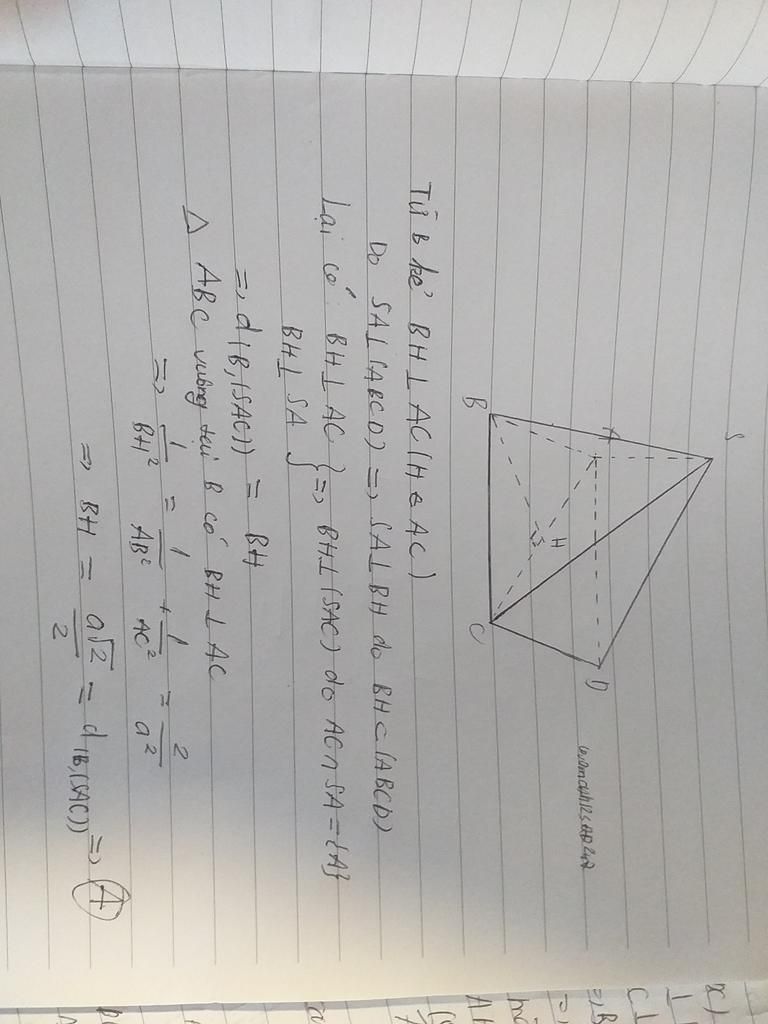 S
A
B
H
C
D
Từ B kẻ BH ⊥ AC (H ∈ AC)
Do SA ⊥ (ABCD) => SA ⊥ BH do BH ⊂ (ABCD)
Lại có: BH ⊥ AC } => BH ⊥ (SAC) do AC ∩ SA = {A}
BH ⊥ SA
=> d(B,(SAC)) = BH
Δ ABC vuông tại B có BH ⊥ AC
=> 1/BH² = 1/AB² + 1/AC² = 2/a²
=> BH = a√2/2 = d(B,(SAC)) => A